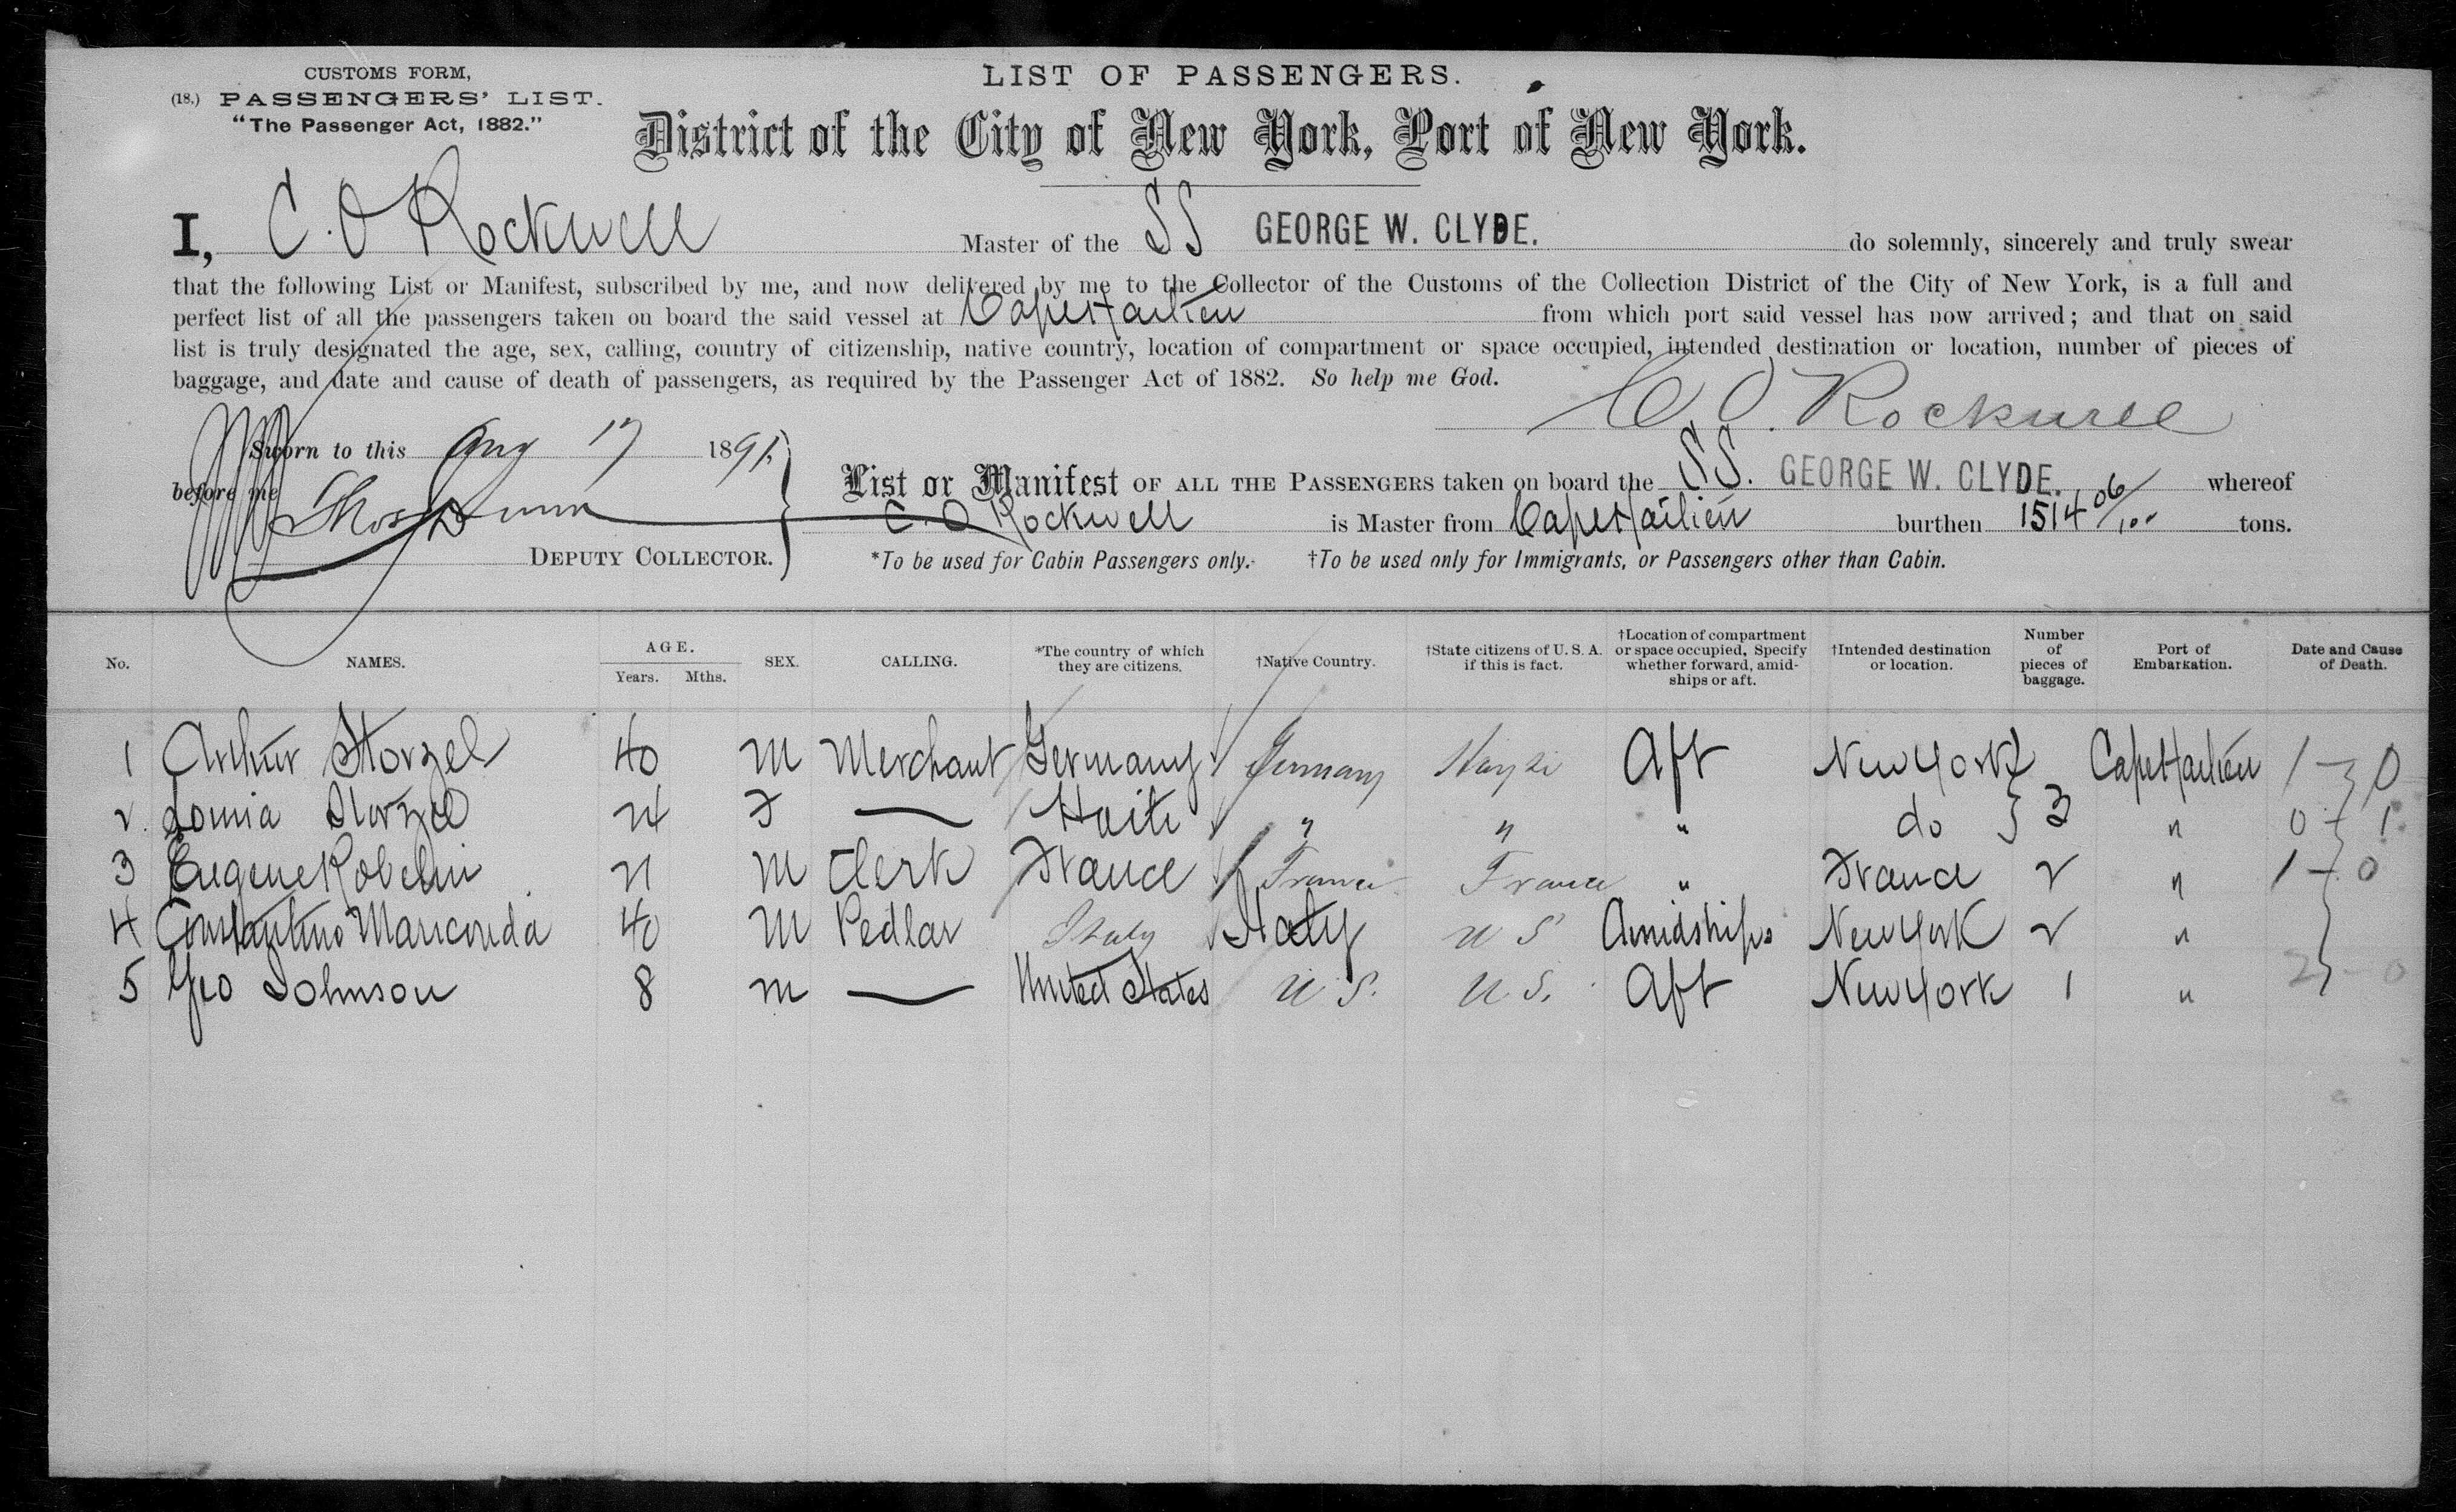 CUSTOMS FORM,
(18.) PASSENGERS' LIST.
"The Passenger Act, 1882."
LIST OF PASSENGERS.
District of the City of New York, Port of New York.
I, C. O Rockwell Master of the SS GEORGE W. CLYDE. do solemnly, sincerely and truly swear
that the following List or Manifest, subscribed by me, and now delivered by me to the Collector of the Customs of the Collection District of the City of New York, is a full and
perfect list of all the passengers taken on board the said vessel at Cape Haitien from which port said vessel has now arrived; and that on said
list is truly designated the age, sex, calling, country of citizenship, native country, location of compartment or space occupied, intended destination or location, number of pieces of
baggage, and date and cause of death of passengers, as required by the Passenger Act of 1882. So help me God.
C. O. Rockwell
Sworn to this Aug 17 1891.
before me Thos Dunn
DEPUTY COLLECTOR.
List or Manifest OF ALL THE PASSENGERS taken on board the SS. GEORGE W. CLYDE. whereof
C. O Rockwell is Master from Cape Haitien burthen 1514 06/100 tons.
*To be used for Cabin Passengers only. †To be used only for Immigrants, or Passengers other than Cabin.
No. NAMES. AGE. Years. Mths. SEX. CALLING. *The country of which they are citizens. †Native Country. †State citizens of U. S. A. if this is fact. †Location of compartment or space occupied, Specify whether forward, amidships or aft. †Intended destination or location. Number of pieces of baggage. Port of Embarkation. Date and Cause of Death.
1 Arthur Storzel 40 M Merchant Germany Germany Hayti Aft New York Cape Haitien 1 - 0
2. Storzel 24 F — Haiti " " " do } 3 " 0 - 1
3 Eugene 21 M Clerk France France France " France 2 " 1 - 0
4 Constantino Mariconda 40 M Pedlar Italy Italy U S Amidships New York 2 "
5 Geo Johnson 8 M — United States U. S. U. S. Aft New York 1 " 2 - 0